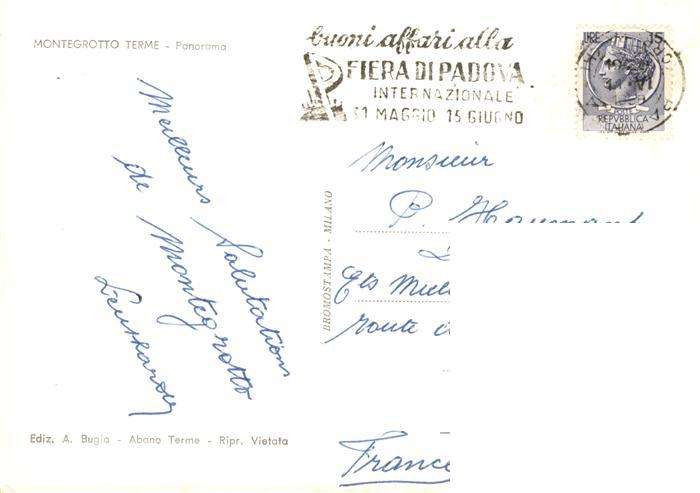 MONTEGROTTO TERME - Panorama
buoni affari alla
FIERA DI PADOVA
INTERNAZIONALE
31 MAGGIO 15 GIUGNO
LIRE 15
POSTE
REPVBBLICA
ITALIANA
Meilleurs Salutations
de Montegrotto
BROMOSTAMPA - MILANO
Monsieur
P.
Ets
route
France
Ediz. A. Bugia - Abano Terme - Ripr. Vietata